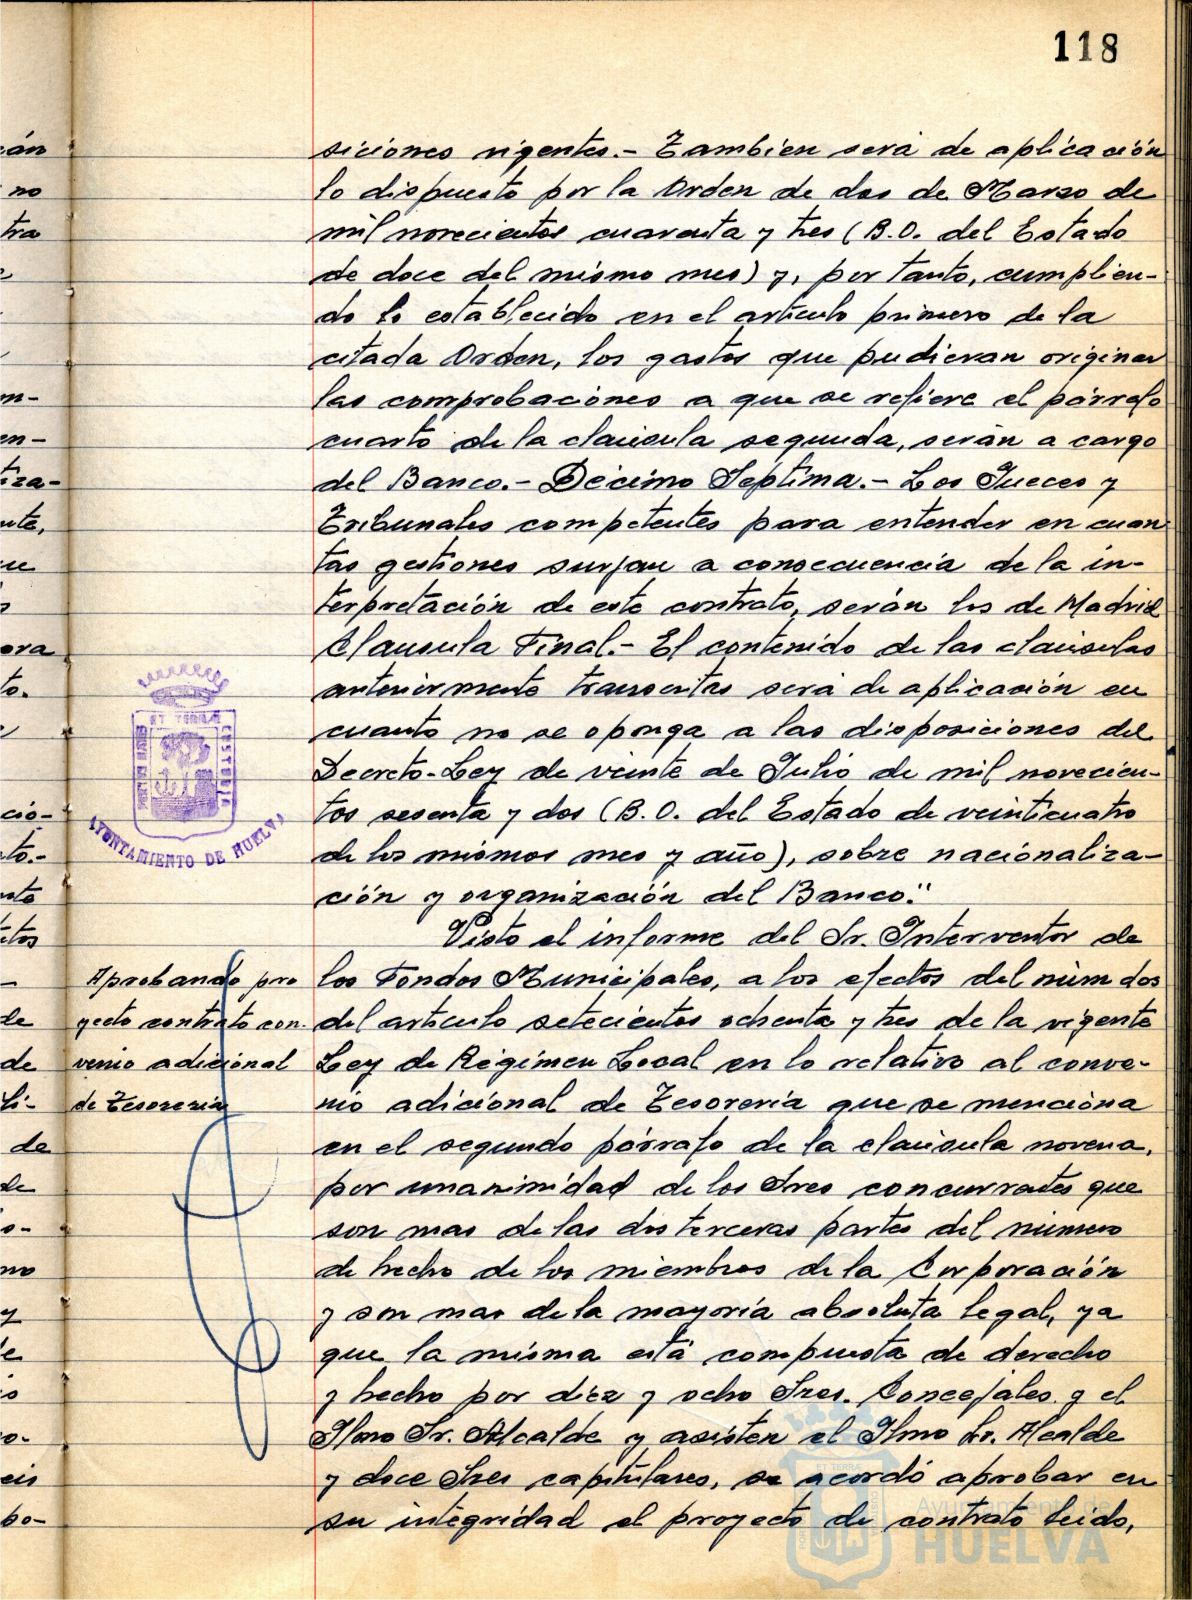 118
siciones vigentes.- Tambien será de aplicación
lo dispuesto por la Orden de dos de Marzo de
mil novecientos cuarenta y tres (B.O. del Estado
de doce del mismo mes) y, por tanto, cumplien-
do lo establecido en el artículo primero de la
citada Orden, los gastos que pudieran originar
las comprobaciones a que se refiere el párrafo
cuarto de la clausula segunda, serán a cargo
del Banco.- Décimo Septima.- Los Jueces y
Tribunales competentes para entender en cuan
tas gestiones surjan a consecuencia de la in-
terpretación de este contrato, serán los de Madrid
Clausula Final.- El contenido de las clausulas
anteriormente transcritas será de aplicación en
cuanto no se oponga a las disposiciones del
Decreto-Ley de veinte de Julio de mil novecien-
tos sesenta y dos (B.O. del Estado de veinticuatro
de los mismos mes y año), sobre nacionaliza-
ción y organización del Banco."
Visto el informe del Sr. Interventor de
los Fondos Municipales, a los efectos del núm dos
del artículo setecientos ochenta y tres de la vigente
Ley de Régimen Local en lo relativo al conve-
nio adicional de Tesorería que se menciona
en el segundo párrafo de la clausula novena,
por unanimidad de los Sres concurrentes que
son mas de las dos terceras partes del número
de hecho de los miembros de la Corporación
y son mas de la mayoría absoluta legal, ya
que la misma está compuesta de derecho
y hecho por diez y ocho Sres. Concejales y el
Ilmo Sr. Alcalde y asisten el Ilmo Sr. Alcalde
y doce Sres capitulares, se acordó aprobar en
su integridad el proyecto de contrato leido,
Aprobando pro
yecto contrato con-
venio adicional
de Tesoreria
PORTUS MARIS
ET TERRÆ
CUSTODIA
AYUNTAMIENTO DE HUELVA
án
no
tra
m-
en-
iza-
nte,
ora
to.
ció-
to.-
de
de
li-
de
de
mo
y
eis
po-
Ayuntamiento de
HUELVA